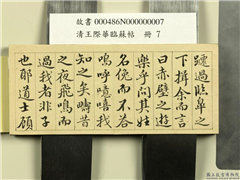 故書 000486N000000007
清王際華臨蘇帖 冊 7
蹮過臨皐之
下揖余而言
曰赤壁之遊
樂乎問其姓
名俛而不答
嗚呼噫嘻我
知之矣疇昔
之夜飛鳴而
過我者非子
也耶道士顧